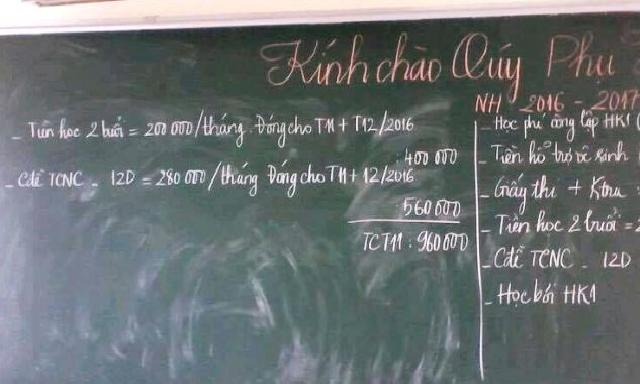 Kính chào Quý Phu
NH 2016 - 2017
- Tiền học 2 buổi = 200 000/tháng. Đóng cho T11 + T12/2016
400 000
- Cđề TCNC - 12D = 280 000/tháng Đóng cho T11 + 12/2016
560 000
TCT11: 960 000
- Học phí công lập HK1 (
- Tiền hỗ trợ vệ sinh
- Giấy thi + Ktra
- Tiền học 2 buổi =
- Cđề TCNC - 12D
- Học bơi HK1